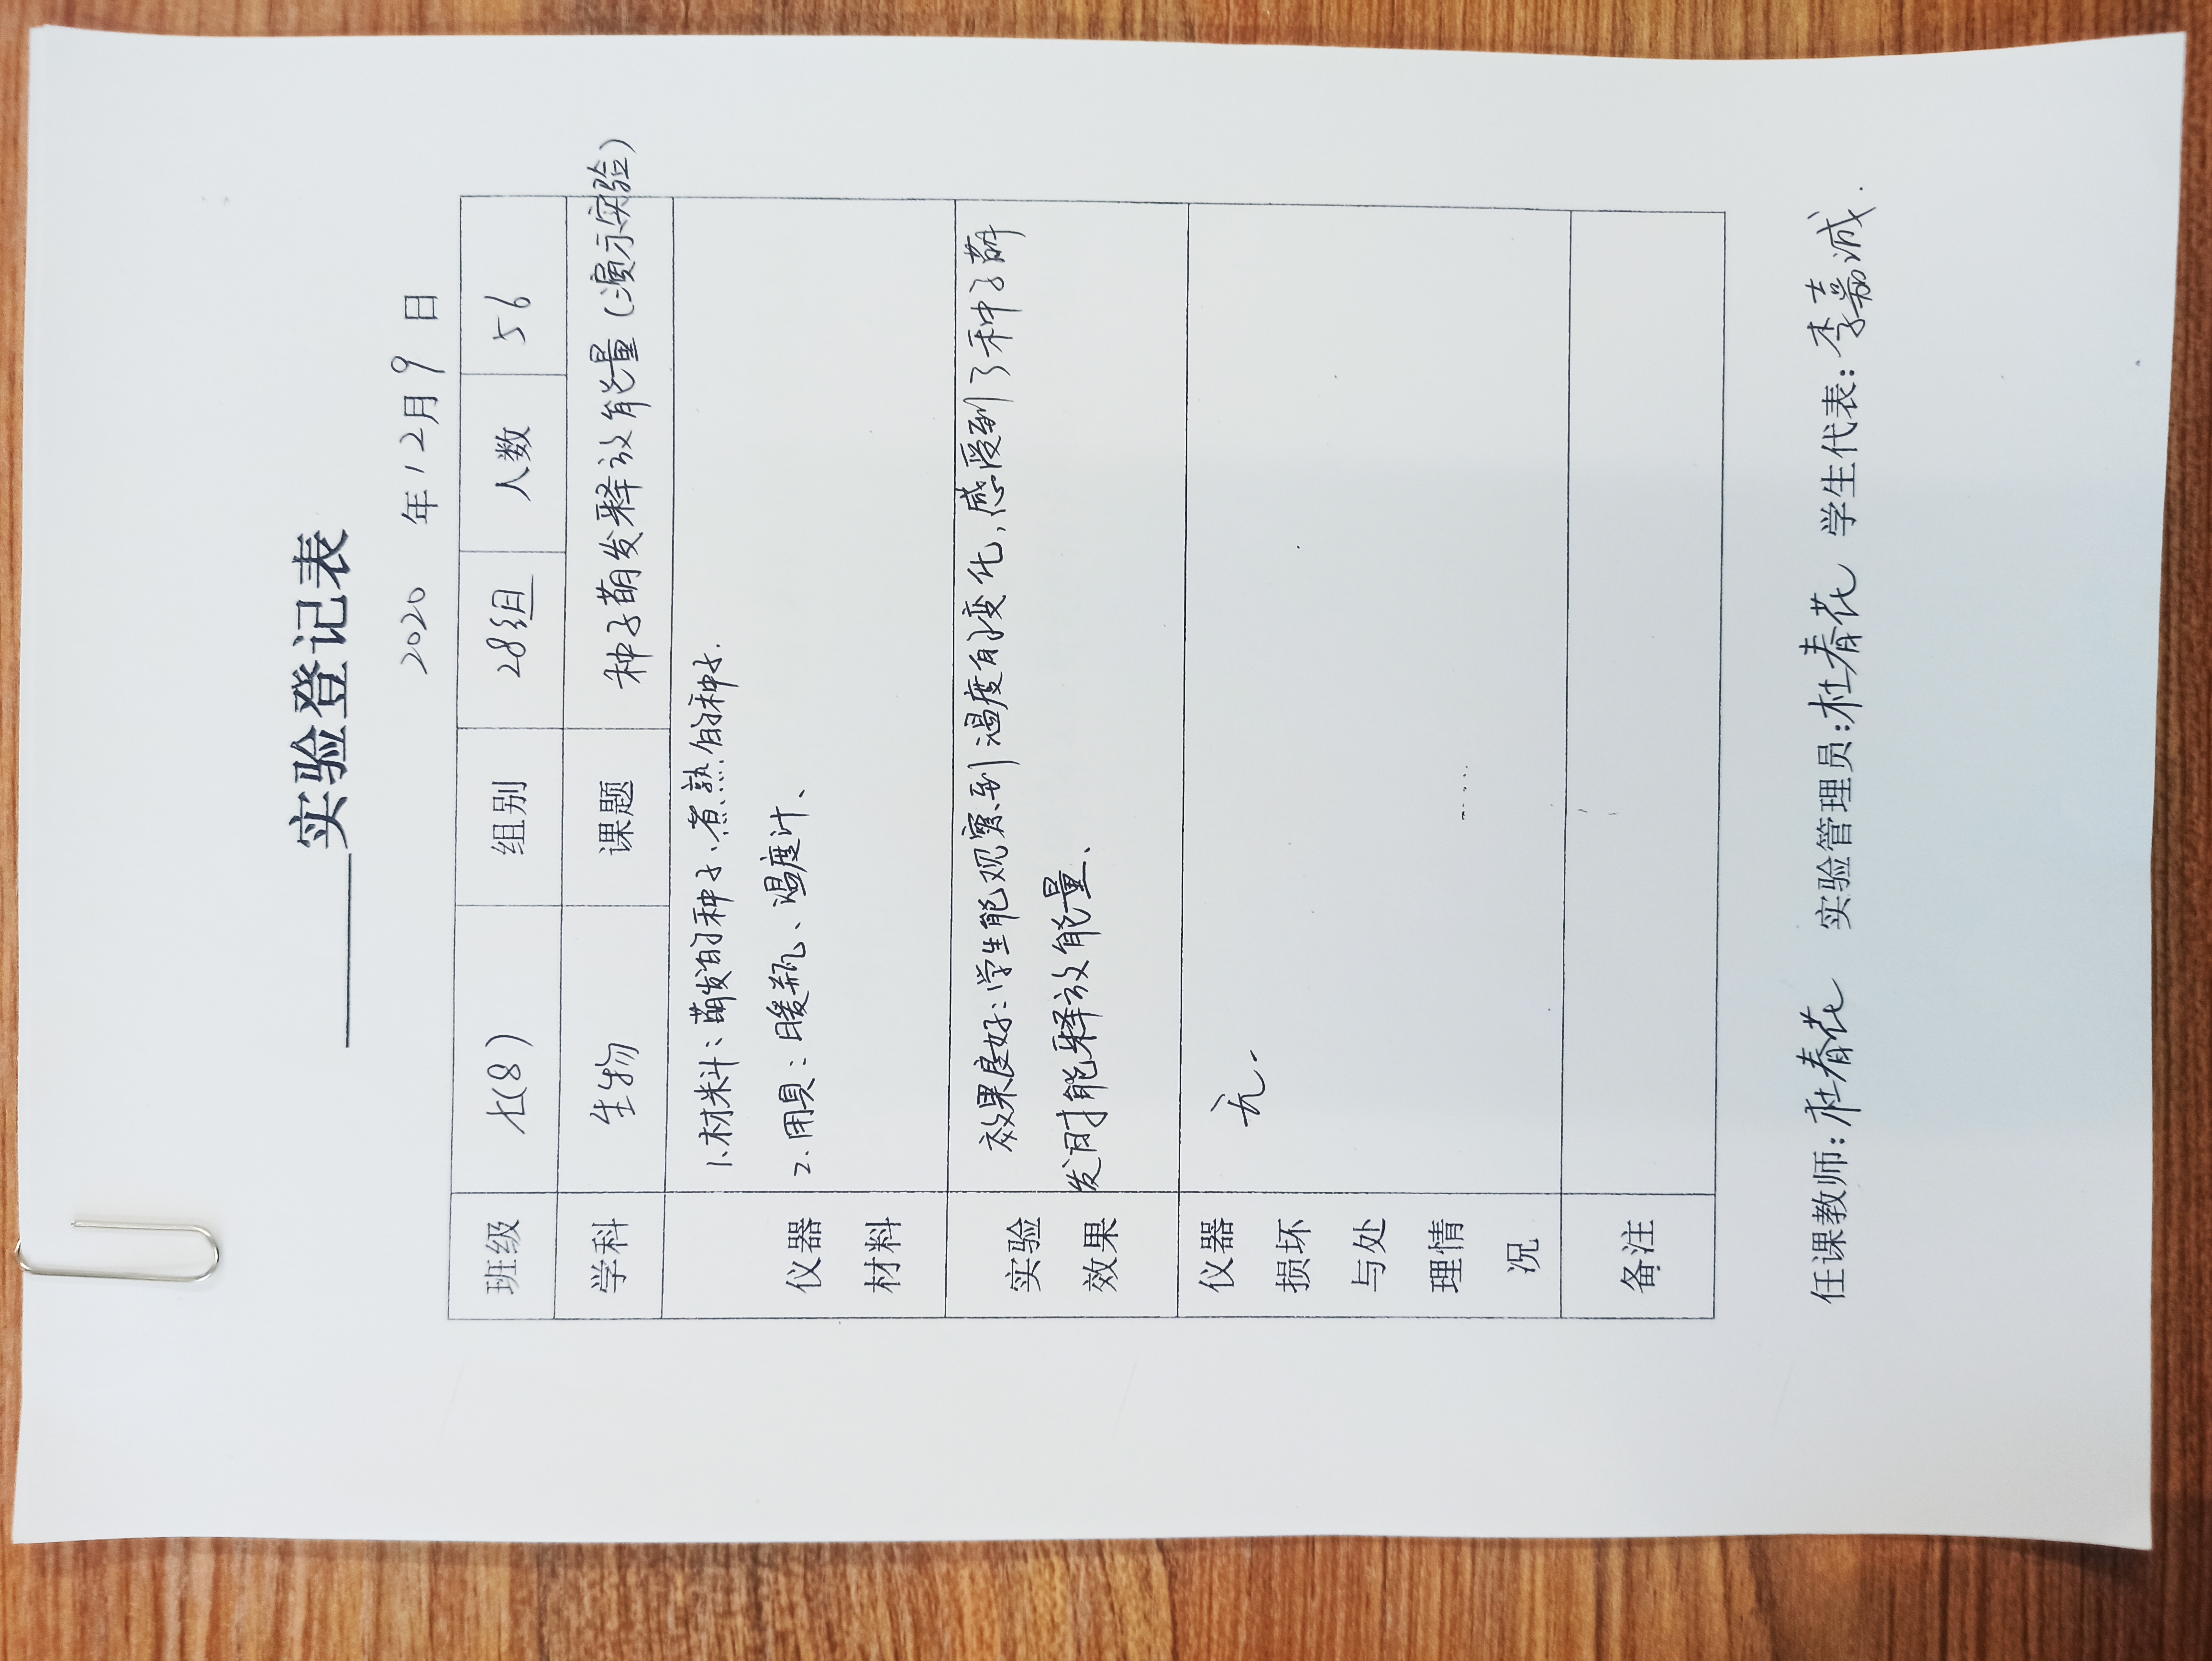 实验登记表
2020 年 12月 9 日
班级 七(8) 组别 28组 人数 56
学科 生物 课题 种子萌发释放能量(演示实验)
仪器
材料
1.材料:萌发的种子、煮熟的种子.
2.用具:暖瓶、温度计、
实验
效果
效果良好:学生能观察到温度的变化,感受到了种子萌
发时能释放能量、
仪器
损坏
与处
理情
况
无.
备注
任课教师:杜春花 实验管理员:杜春花 学生代表:李嘉诚.